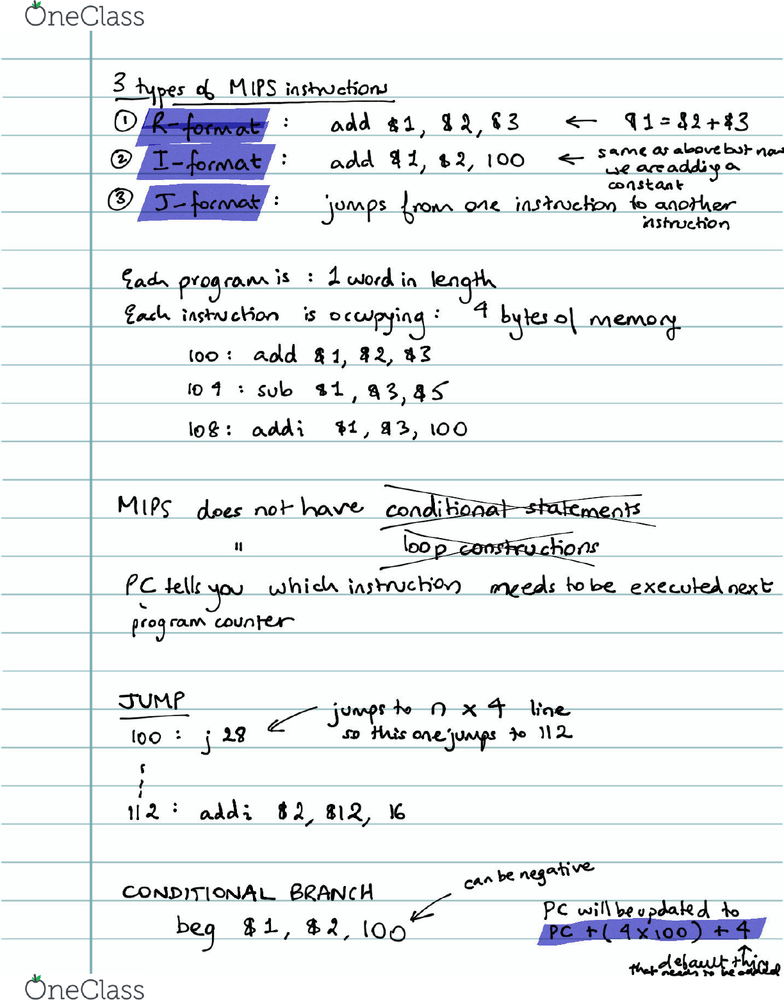 OneClass
3 types of MIPS instructions
① R-format : add $1, $2, $3 ← $1 = $2 + $3
② I-format : add $1, $2, 100 ← same as above but now
we are adding a
constant
③ J-format : jumps from one instruction to another
instruction
Each program is : 1 word in length
Each instruction is occupying : 4 bytes of memory
100 : add $1, $2, $3
104 : sub $1, $3, $5
108 : addi $1, $3, 100
MIPS does not have conditional statements
" loop constructions
PC tells you which instruction needs to be executed next
program counter
JUMP
100 : j 28 ← jumps to n × 4 line
so this one jumps to 112
112 : addi $2, $12, 16
CONDITIONAL BRANCH
can be negative
beq $1, $2, 100
PC will be updated to
PC + ( 4 × 100 ) + 4
default thing
that needs to be added
OneClass